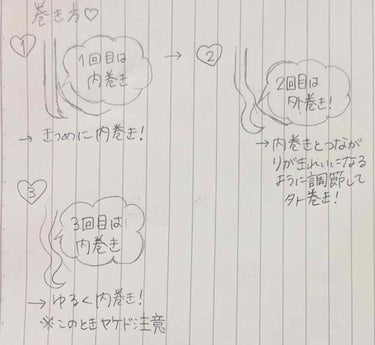 巻き方♡
1
1回目は
内巻き
→ きつめに内巻き!
→
2
2回目は
外巻き!
→内巻きとつなが
りがきれいになる
ように調節して
外巻き!
3
3回目は
内巻き
→ ゆるく内巻き!
※このときヤケド注意